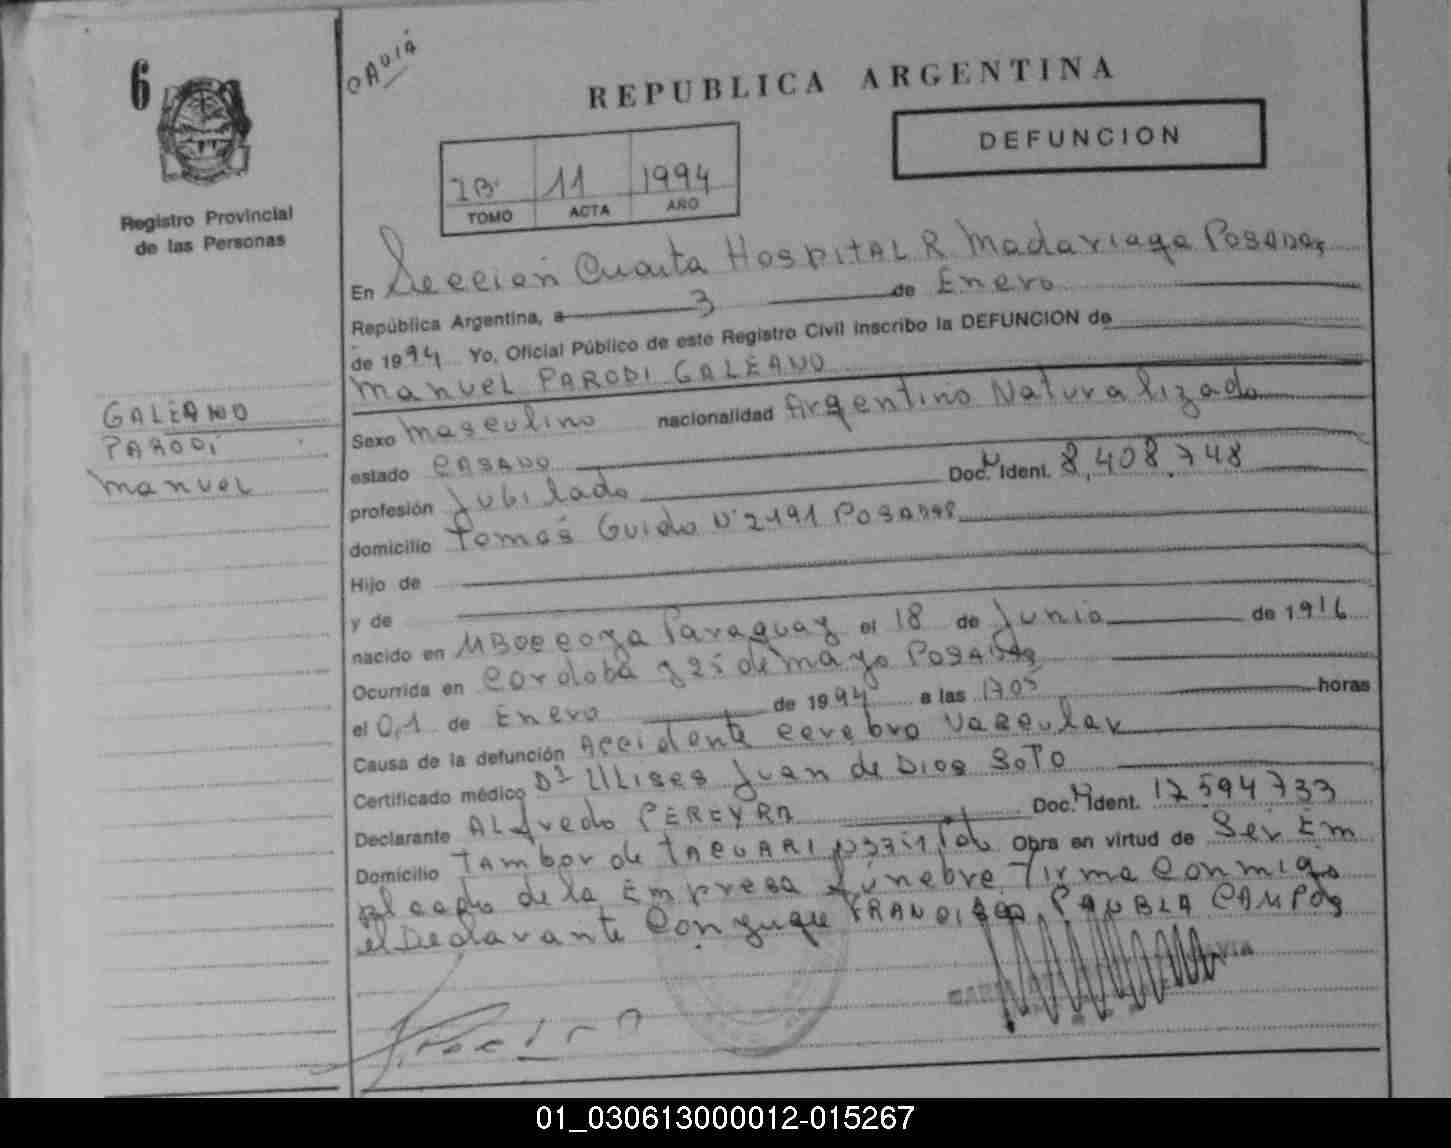 6
Registro Provincial
de las Personas
GALEANO
PARODI
Manuel
REPUBLICA ARGENTINA
DEFUNCION
1B. 11 1994
TOMO ACTA AÑO
En Seccion Cuarta HOSPITAL R. Madariaga POSADAS
República Argentina, a 3 de Enero
de 1994 Yo, Oficial Público de este Registro Civil inscribo la DEFUNCION de
Manuel PARODI GALEANO
Sexo Masculino nacionalidad Argentino Naturalizado
estado CASADO
profesión Jubilado Doc. N Ident. 8.408.748
domicilio Tomás Guido N° 2191 POSADAS
Hijo de
y de
nacido en Paraguay el 18 de Junio de 1916
Ocurrida en Cordoba y 25 de Mayo POSADAS
el 01 de Enero de 1994 a las 1705 horas
Causa de la defunción Accidente cerebro vascular
Certificado médico Dr Ulises Juan de Dios SOTO
Declarante Alfredo PEREYRA Doc. N Ident. 17594733
Domicilio TAMBOR de TACUARI Obra en virtud de Ser Em
pleado de la Empresa Fúnebre. Firma conmigo
el Declarante Conyugue CAMPOS
01_030613000012-015267